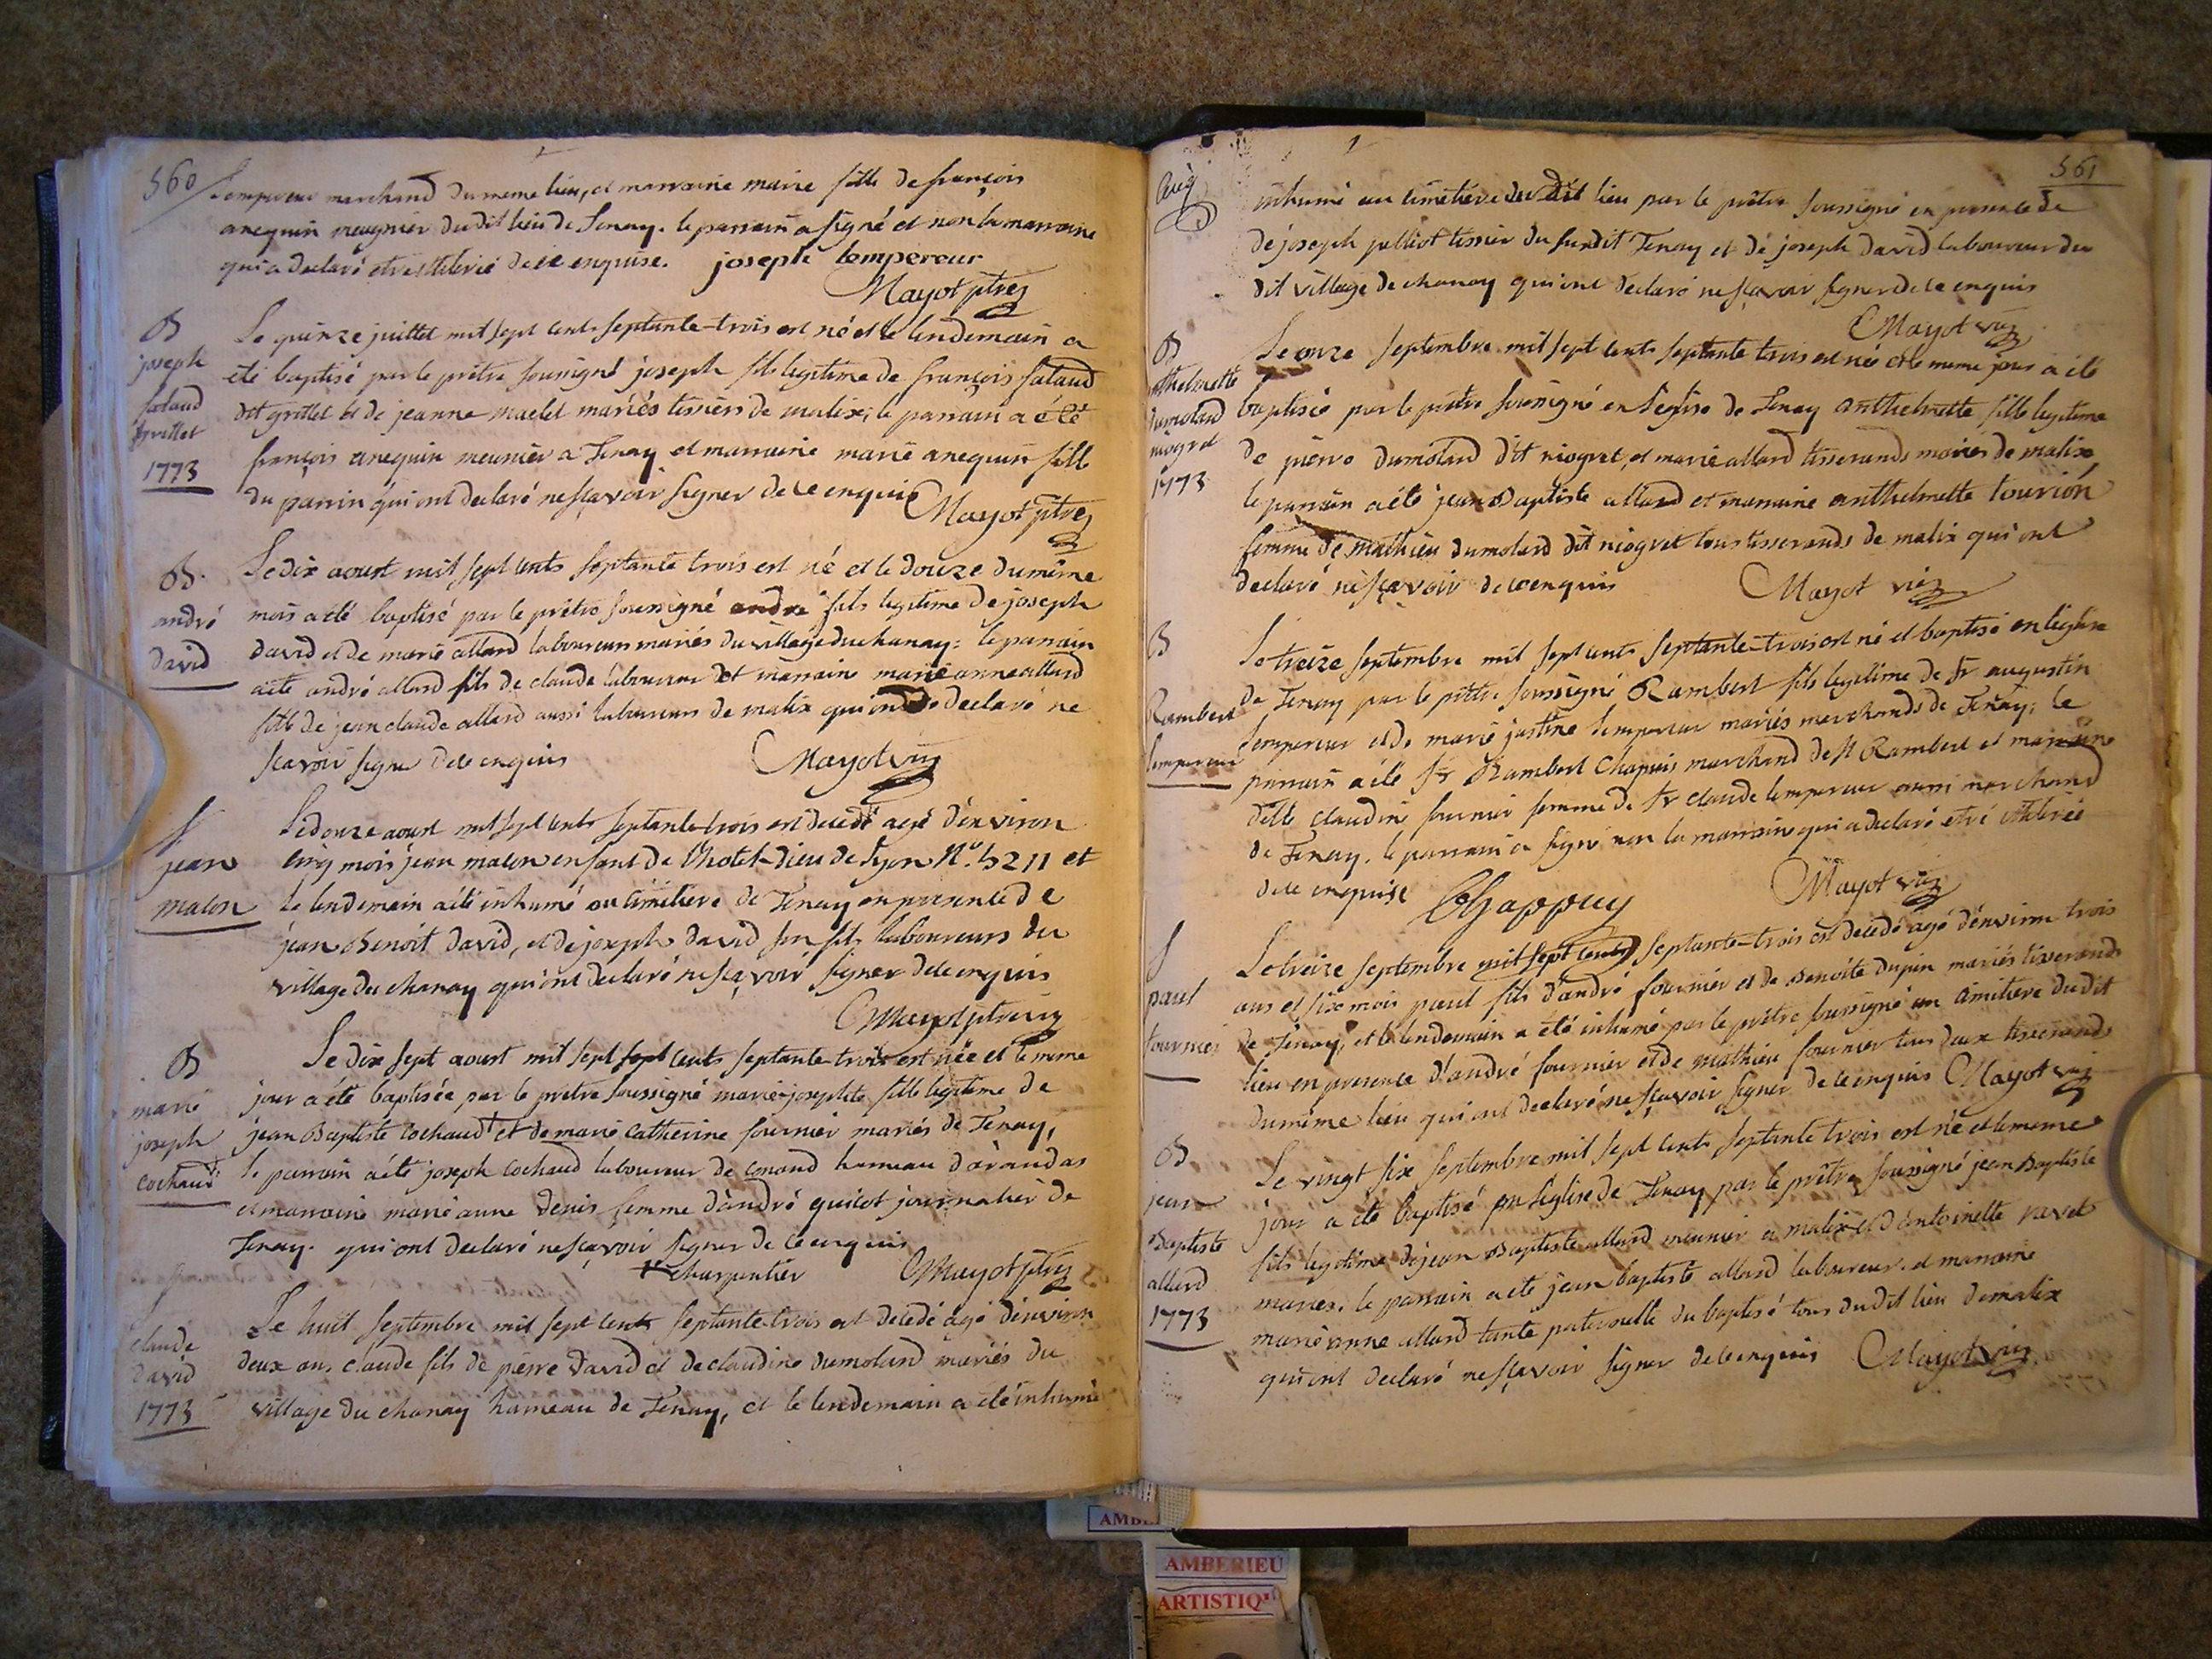 560
Lempereur marchand du meme lieu, et marraine marie fille de françois
anequin meugnier dudit lieu de Tenay. le parrain a signé et non la marraine
qui a declaré etre illiteréé de ce enquise. joseph Lempereur
Mayot ptre
B
joseph
falaud
grillet
1773
Le quinze juillet mil sept cents septante-trois est né et le lendemain a
été baptisé par le prêtre soussigné joseph fils legitime de françois falaud
dit grillet et de jeanne maclet mariés tissiers de malix; le parrain a été
françois anequin meunier a Tenay et marraine marie anequin fille
du parrin qui ont declaré ne sçavoir signer de ce enquis
Mayot ptre
B.
andré
david
Le dix aoust mil sept cents septante trois est né et le douze du même
mois a été baptisé par le prêtre soussigné andré fils legitime de joseph
david et de marie allard laboureurs mariés du village du chanay: le parrain
a été andré allard fils de claude laboureur et marraine marie anne allard
fille de jean claude allard aussi laboureurs de malix qui ont declaré ne
scavoir signe de ce enquis
Mayot vic
S
jean
malon
Le douze aoust mil sept cents septante-trois est decedé agé d'environ
cinq mois jean malon enfant de l'hotel-dieu de Lyon N.° 5211 et
le lendemain a été inhumé au cimetiere de Tenay en presence de
jean Benoit david, et de joseph david son fils laboureurs du
village du chanay qui ont declaré ne sçavoir signer de ce enquis
Mayot ptre vic
B
marie
joseph
cochaud
Le dix sept aoust mil sept sept cents septante-trois est née et le meme
jour a été baptisée par le prêtre soussigné marie-josephte fille legitime de
jean Baptiste cochaud † et de marie catherine fournier mariés de Tenay,
le parrain a été joseph cochaud laboureur de conand hameau d'arandas
et marraine marie anne denis femme d'andré guicot journalier de
Tenay. qui ont declaré ne sçavoir signer de ce enquis
† charpentier
Mayot ptre
S
claude
david
1773
Le huit septembre mil sept cents septante-trois est decedé agé d'environ
deux ans claude fils de pierre david et de claudine dumolard mariés du
village du chanay hameau de Tenay, et le lendemain a été inhumé
561
inhumé au cimetiére du dit lieu par le prêtre soussigné en presence de
de joseph pelliot tissier du susdit Tenay et de joseph david laboureur du
dit village de chanay qui ont declaré ne sçavoir signer de ce enquis
Mayot vic
B
anthelmette
dumolard
niogret
1773
Le onze septembre mil sept cents septante trois est né et le meme jour a été
baptisée par le prêtre soussigné en l'église de Tenay anthelmette fille legitime
de pierre dumolard dit niogret, et marie allard tisserands mariés de malix,
le parrain a été jean Baptiste allard et marraine anthelmette tourion
femme de mathieu dumolard dit niogret tous tisserands de malix qui ont
declaré ne sçavoir de ce enquis
Mayot vic
B
Rambert
Lempereur
Le treize septembre mil sept cents septante-trois est né et baptisé en l'église
de Tenay par le prêtre soussigné Rambert fils legitime de sr augustin
Lempereur et de marie justine Lempereur mariés marchands de Tenay; le
parrain a été sr Rambert chapuis marchand de St Rambert et marraine
dlle claudine fournier femme de sr claude lempereur aussi marchand
de Tenay. le parrain a signé non la marraine qui a declaré etre illiterée
de ce enquise
Chappuy
Mayot vic
S
paul
fournier
Le treize septembre mil sept cents septante-trois est decedé agé d'environ trois
ans et six mois paul fils d'andré fournier et de Benoite dupin mariés tisserands
de Tenay, et le lendemain a été inhumé par le prêtre soussigné au cimitiere dudit
lieu en presence d'andré fournier et de mathieu fournier tous deux tisserands
du même lieu qui ont declaré ne sçavoir signer de ce enquis Mayot vic
B
jean
Baptiste
allard
1773
Le vingt six septembre mil sept cents septante trois est né et le meme
jour a été baptisé en l'église de Tenay par le prêtre soussigné jean Baptiste
fils legitime de jean Baptiste allard meunier a malix et d'antoinette ravet
mariés. le parrain a été jean baptiste allard laboureur et marraine
marie anne allard tante paternelle du baptisé tous dudit lieu de malix
qui ont declaré ne sçavoir signer de ce enquis Mayot vic
AMBERIEU
ARTISTIQ